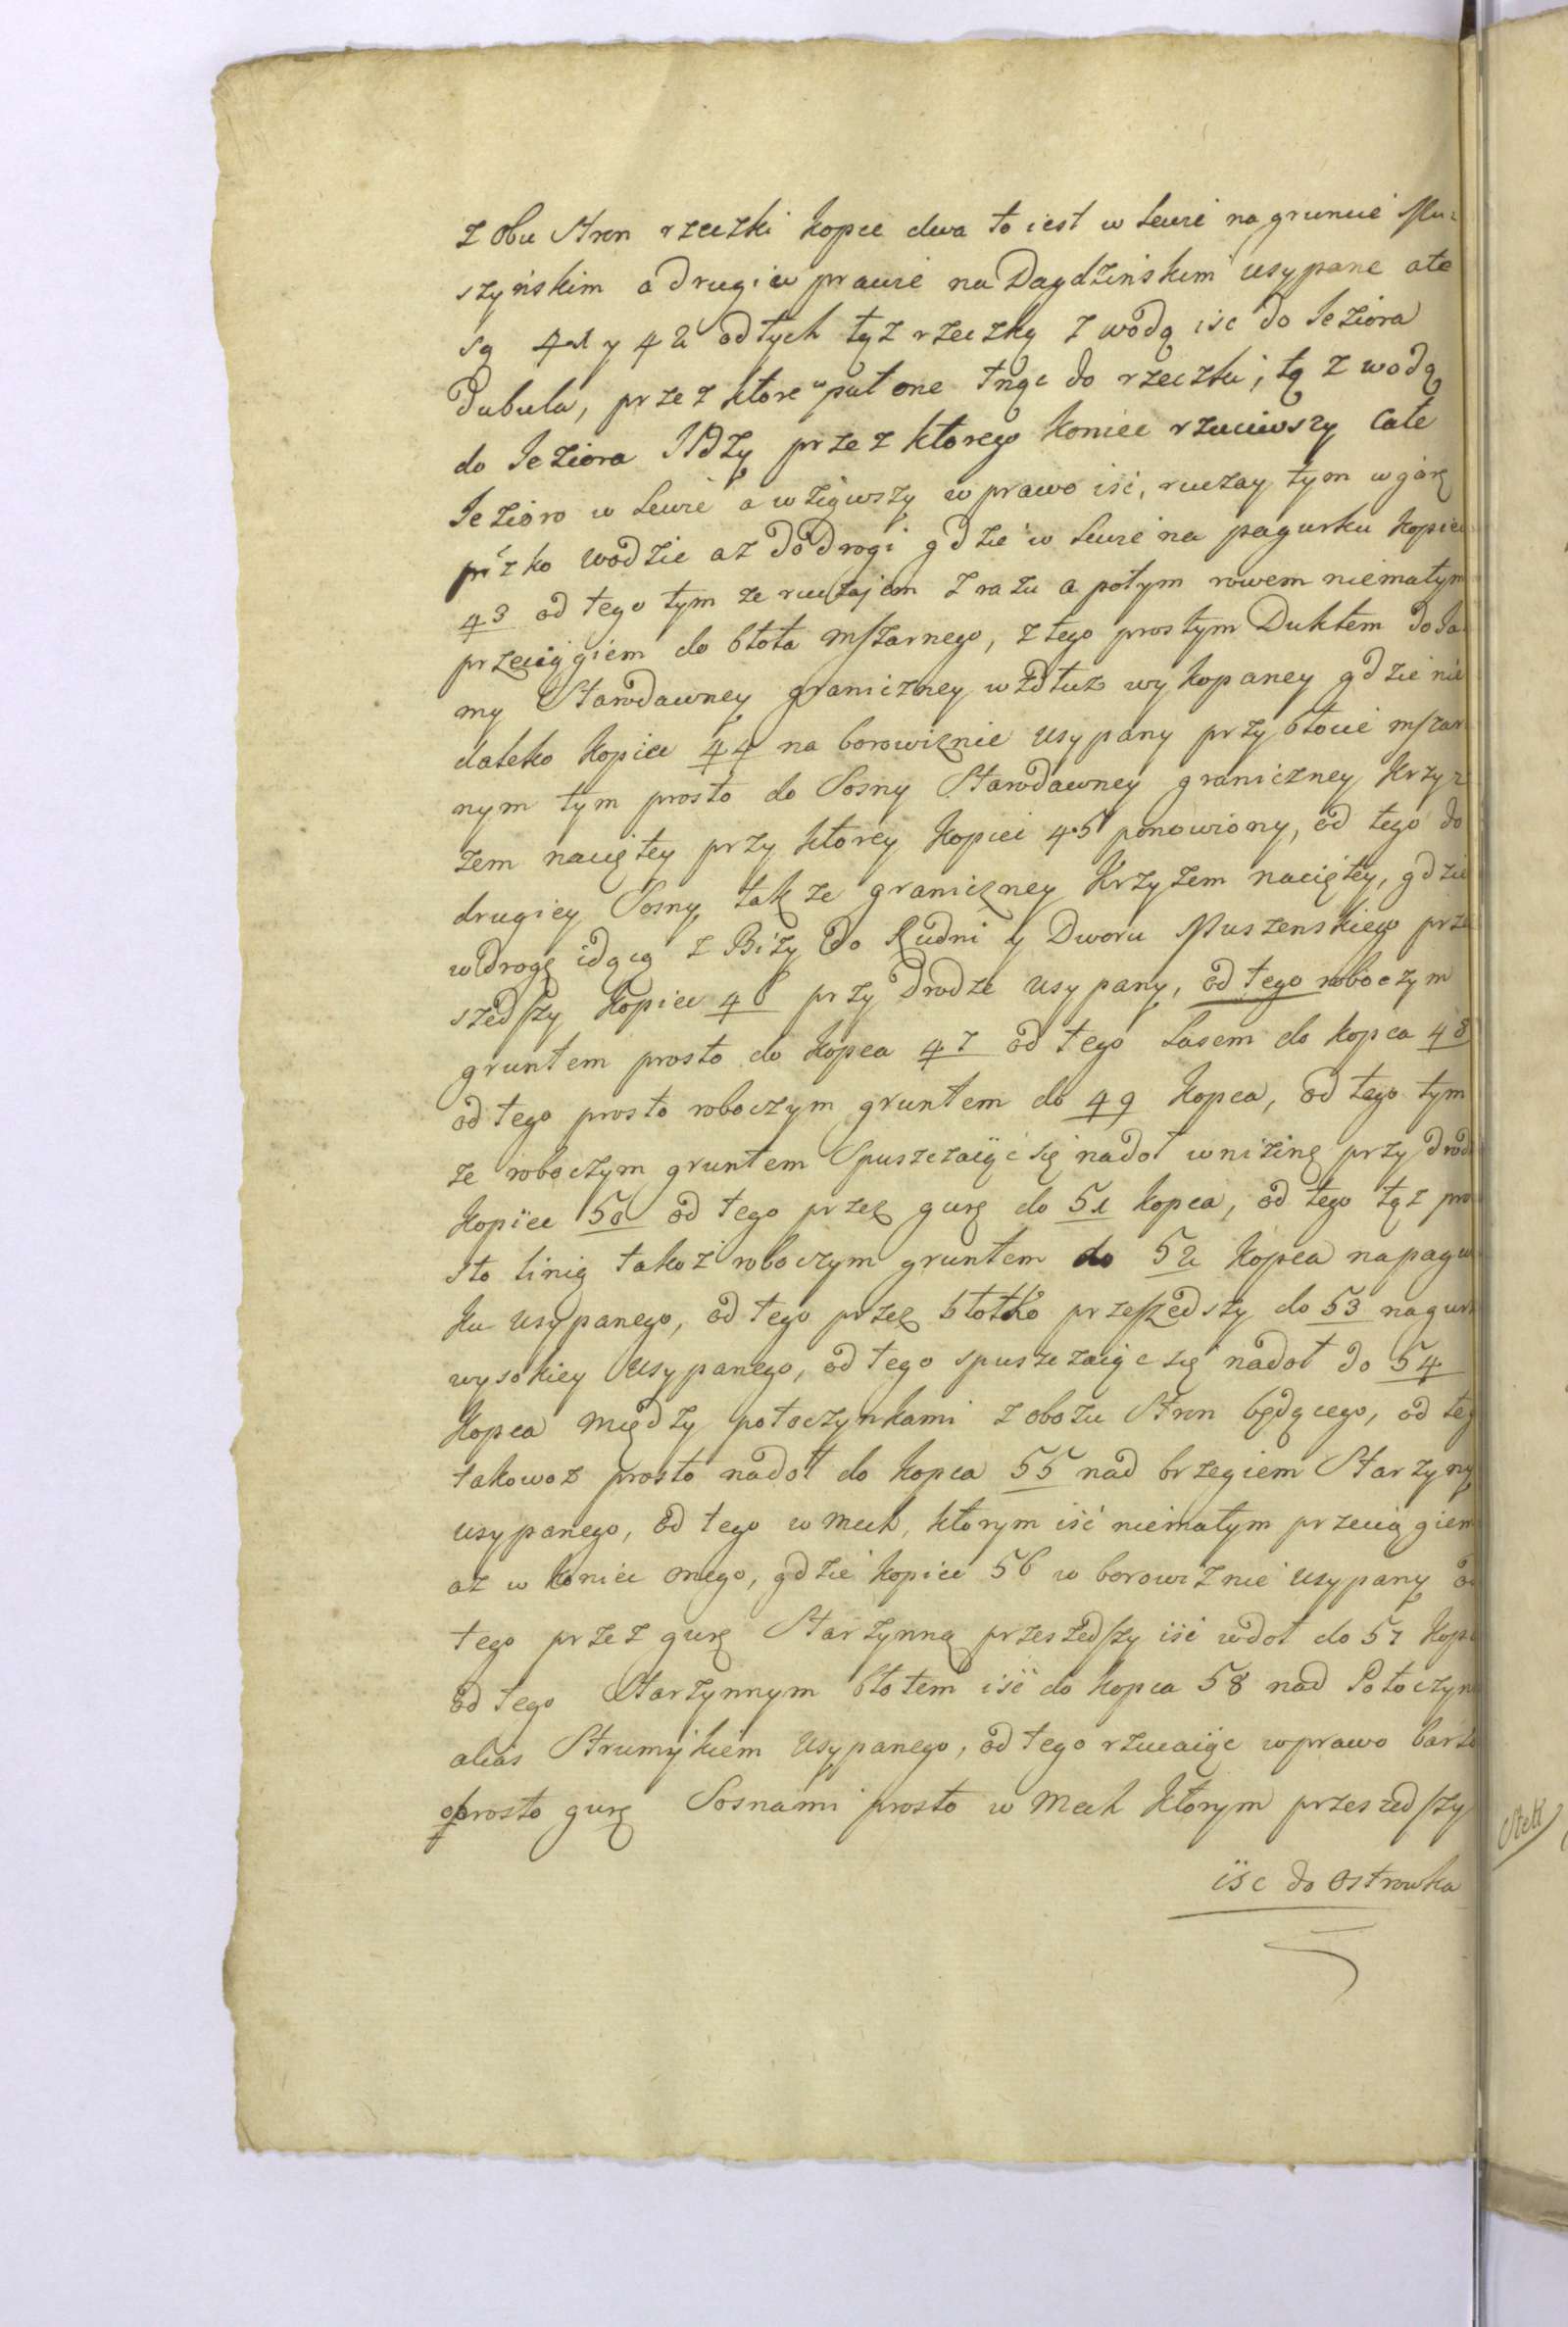 z obu stron rzeczki kopce dwa to iest w lewie na gruncie Mu-
szyńskim a drugi w prawie na Dagdzińskim usypane ato
są 41 y 42 od tych tąż rzeczką z wodą iśc do Ieziora
Dubula, przez ktore w puł one tnąc do rzeczki, tą z wodą
do Ieziora Udży przez ktorego koniec rzuciwszy całe
Iezioro w lewie a wziąwszy w prawo iść, ruczay tym w górę
przko wodzie aż do drogi gdzie w lewie na pagurku kopiec
43 od tego tym ze ruczajem zrazu a potym rowem niemałym
przeciągiem do błota mszarnego, z tego prostym Duktem do Ja
my Starodawney graniczney wzdłuż wykopaney gdzie nie
daleko kopiec 44 na borowiznie usypany przy błocie mszar
nym tym prosto do Sosny Starodawney graniczney krzy-
żem naciętey przy ktorey kopiec 45 ponowiony, od tego do
drugiey Sosny także graniczney krzyżem naciętey, gdzie
w drogę idącą z Biży do Rudni y Dworu Muszenskiego prze
szedszy kopiec 46 przy drodze usypany, od tego roboczym
gruntem prosto do kopca 47 od tego Lasem do kopca 48
od tego prosto roboczym gruntem do 49 kopca, od tego tym
że roboczym gruntem Spuszczaiąc się nadoł w nizinę przy drod
kopiec 50 od tego przez gurę do 51 kopca, od tego tąż pro
sto linią takoż roboczym gruntem do 52 kopca na pagur
ku usypanego, od tego przez błotko przeszedszy do 53 na gurz
wysokiey usypanego, od tego spuszczaiąc się nadoł do 54
kopca między potoczynkami z obożu Stron będącego, od teg
takowoż prosto nadoł do kopca 55 nad brzegiem Starzyny
usypanego, od tego w mech, ktorym iść niemałym przeciągiem
aż w koniec onego, gdzie kopiec 56 w borowiznie usypany o
tego przez gurę Starzynną przeszedszy iść wdoł do 57 kopc
od tego Starzynnym błotem iść do kopca 58 nad Potoczyn
alias Strumykiem usypanego, od tego rzucaiąc w prawo barzo
prosto gurę Sosnami prosto w mech ktorym przeszedszy
iśc do ostrowka